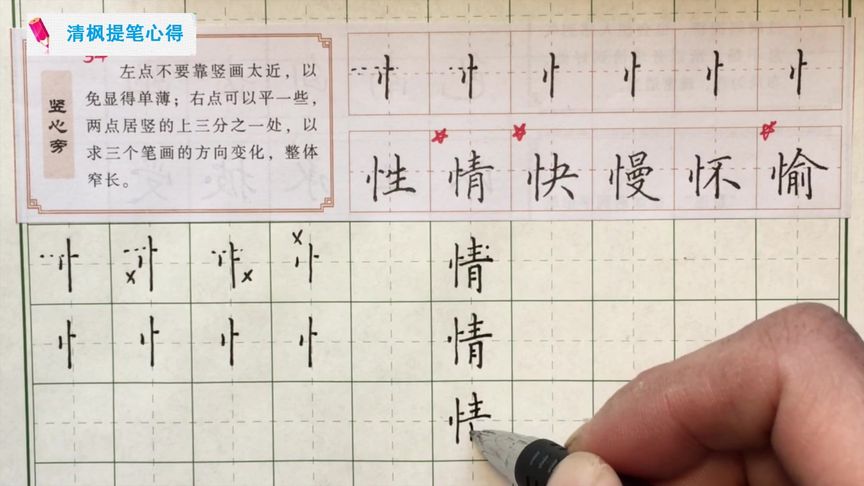 清枫提笔心得
竖心旁
左点不要靠竖画太近，以
免显得单薄；右点可以平一些，
两点居竖的上三分之一处，以
求三个笔画的方向变化，整体
窄长。
忄 忄 忄 忄 忄 忄
性 情 快 慢 怀 愉
忄 忄 忄 忄 情
忄 忄 忄 忄 情